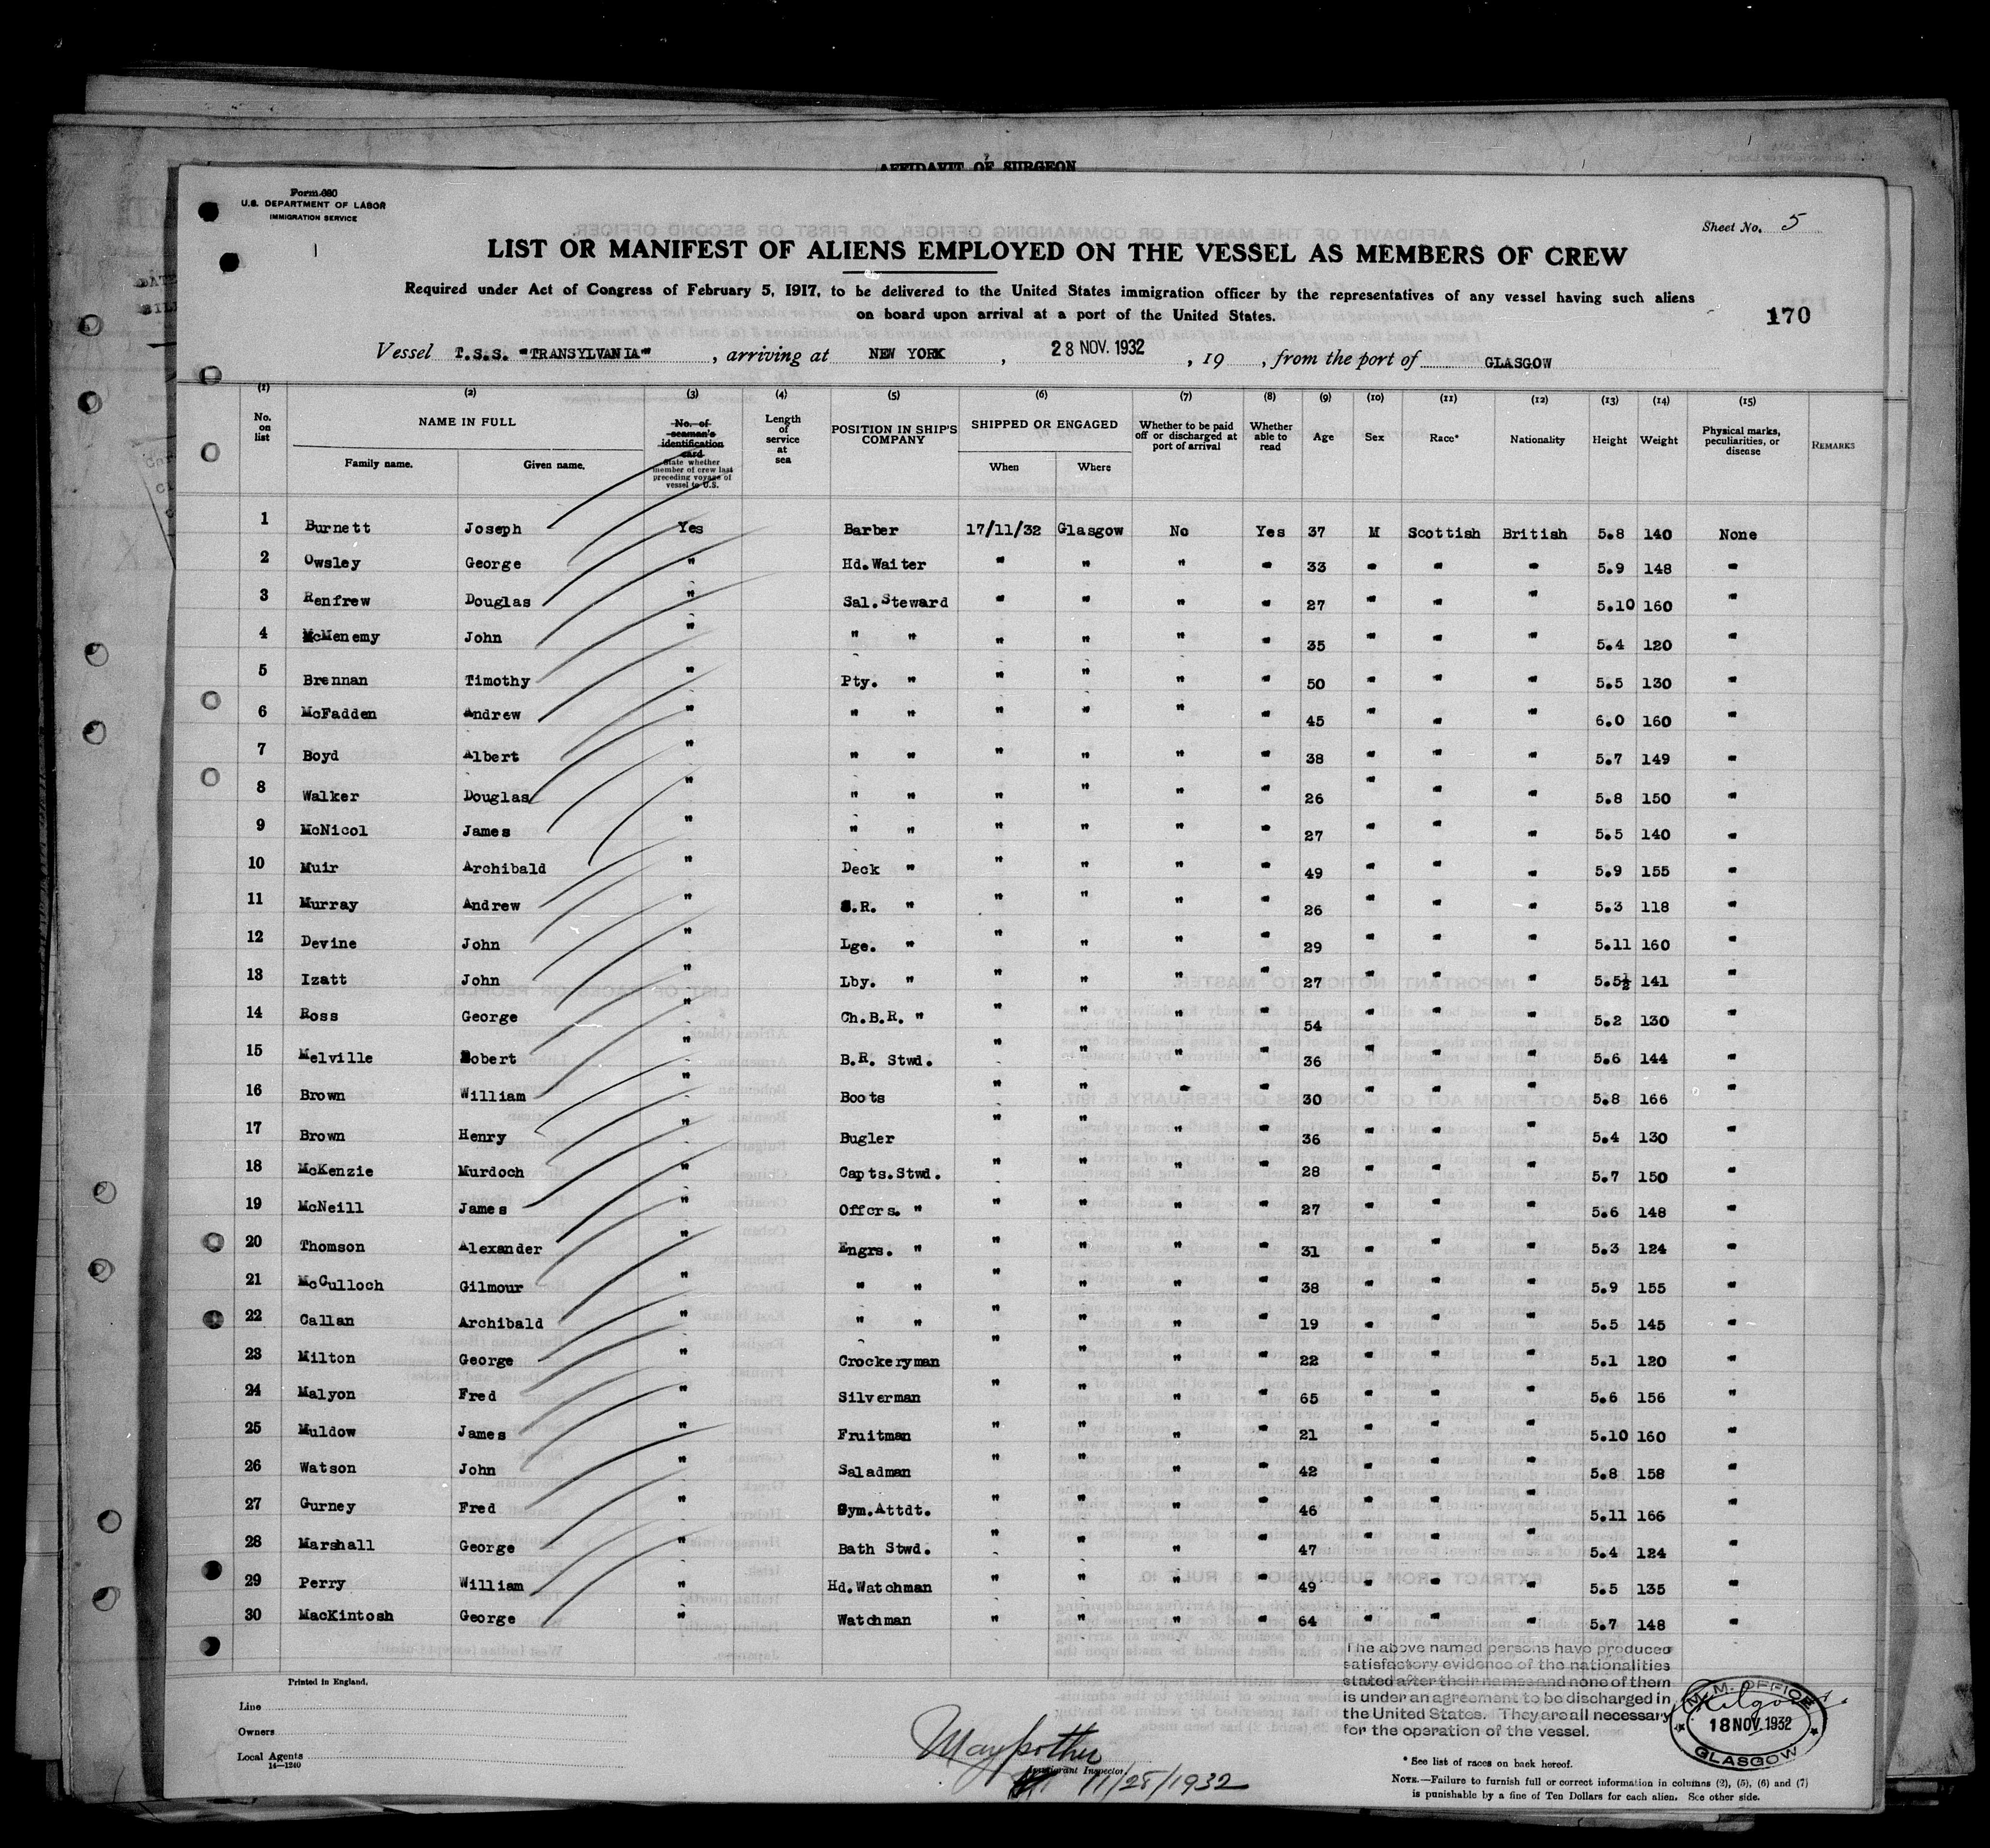 AFFIDAVIT OF SURGEON
Form 680
U.S. DEPARTMENT OF LABOR
IMMIGRATION SERVICE
Sheet No. 5
LIST OR MANIFEST OF ALIENS EMPLOYED ON THE VESSEL AS MEMBERS OF CREW
Required under Act of Congress of February 5, 1917, to be delivered to the United States immigration officer by the representatives of any vessel having such aliens
on board upon arrival at a port of the United States.
170
Vessel T.S.S. "TRANSYLVANIA", arriving at NEW YORK, 28 NOV. 1932, 19 , from the port of GLASGOW
(1) (2) (3) (4) (5) (6) (7) (8) (9) (10) (11) (12) (13) (14) (15)
No. on list NAME IN FULL Family name. Given name. No. of seaman's identification card State whether member of crew last preceding voyage of vessel to U.S. Length of service at sea POSITION IN SHIP'S COMPANY SHIPPED OR ENGAGED When Where Whether to be paid off or discharged at port of arrival Whether able to read Age Sex Race* Nationality Height Weight Physical marks, peculiarities, or disease REMARKS
1 Burnett Joseph Yes Barber 17/11/32 Glasgow No Yes 37 M Scottish British 5.8 140 None
2 Owsley George " Hd.Waiter " " " " 33 " " " 5.9 148 "
3 Renfrew Douglas " Sal.Steward " " " " 27 " " " 5.10 160 "
4 McMenemy John " " " " " " " 35 " " " 5.4 120 "
5 Brennan Timothy " Pty. " " " " " 50 " " " 5.5 130 "
6 McFadden Andrew " " " " " " " 45 " " " 6.0 160 "
7 Boyd Albert " " " " " " " 38 " " " 5.7 149 "
8 Walker Douglas " " " " " " " 26 " " " 5.8 150 "
9 McNicol James " " " " " " " 27 " " " 5.5 140 "
10 Muir Archibald " Deck " " " " " 49 " " " 5.9 155 "
11 Murray Andrew " S.R. " " " " " 26 " " " 5.3 118 "
12 Devine John " Lge. " " " " " 29 " " " 5.11 160 "
13 Izatt John " Lby. " " " " " 27 " " " 5.5½ 141 "
14 Ross George " Ch.B.R. " " " " " 54 " " " 5.2 130 "
15 Melville Robert " B.R. Stwd. " " " " 36 " " " 5.6 144 "
16 Brown William " Boots " " " " 30 " " " 5.8 166 "
17 Brown Henry " Bugler " " " " 36 " " " 5.4 130 "
18 McKenzie Murdoch " Capts.Stwd. " " " " 28 " " " 5.7 150 "
19 McNeill James " Offcrs. " " " " " 27 " " " 5.6 148 "
20 Thomson Alexander " Engrs. " " " " " 31 " " " 5.3 124 "
21 McCulloch Gilmour " " " " " " " 38 " " " 5.9 155 "
22 Callan Archibald " " " " " " " 19 " " " 5.5 145 "
23 Milton George " Crockeryman " " " " 22 " " " 5.1 120 "
24 Malyon Fred " Silverman " " " " 65 " " " 5.6 156 "
25 Muldow James " Fruitman " " " " 21 " " " 5.10 160 "
26 Watson John " Saladman " " " " 42 " " " 5.8 158 "
27 Gurney Fred " Gym.Attdt. " " " " 46 " " " 5.11 166 "
28 Marshall George " Bath Stwd. " " " " 47 " " " 5.4 124 "
29 Perry William " Hd.Watchman " " " " 49 " " " 5.5 135 "
30 MacKintosh George " Watchman " " " " 64 " " " 5.7 148 "
The above named persons have produced
satisfactory evidence of the nationalities
stated after their names and none of them
is under an agreement to be discharged in
the United States. They are all necessary
for the operation of the vessel.
M.M. OFFICE
18 NOV. 1932
GLASGOW
Printed in England.
Line
Owners
Local Agents
14—1240
Immigrant Inspector.
11/28/1932
* See list of races on back hereof.
NOTE.—Failure to furnish full or correct information in columns (2), (5), (6) and (7)
is punishable by a fine of Ten Dollars for each alien. See other side.